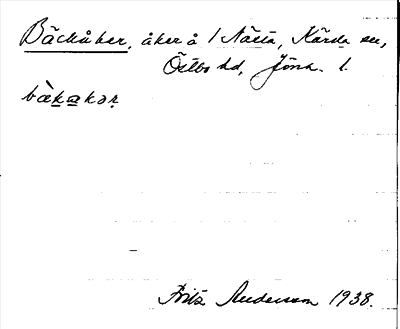 Bäckåker, åker å 1 Nästa, Kärda sn,
Östbo hd, Jönk. l.
bæ̀kakər
Fritz Andersson 1938.